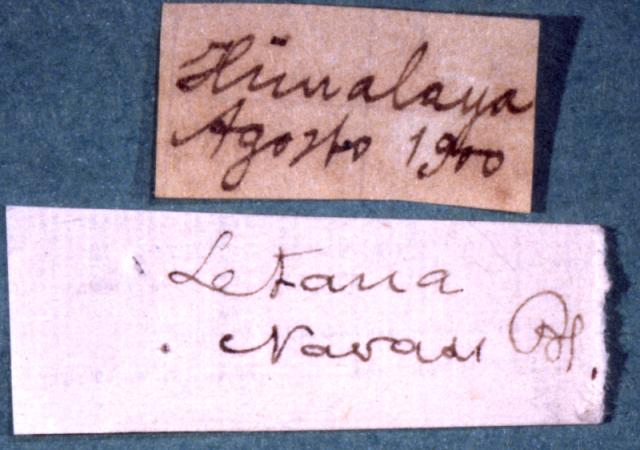 Himalaya
Agosto 1900
Letana
Navasi Bol.